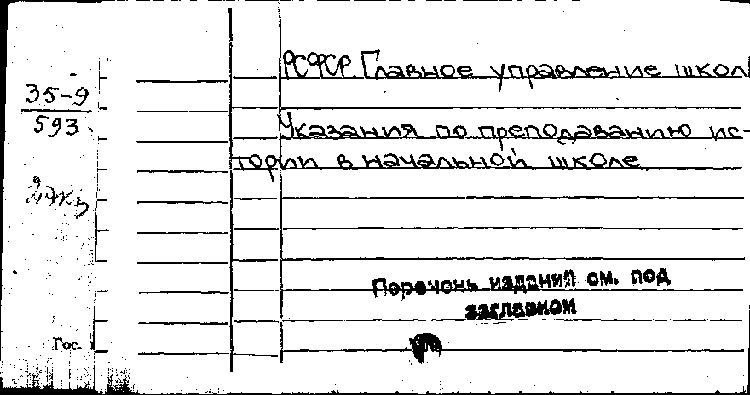 РСФСР. Главное управление школ
35-9
593
Указания по преподаванию ис-
тории в начальной школе
Перечень изданий см. под
заглавием
Гос.